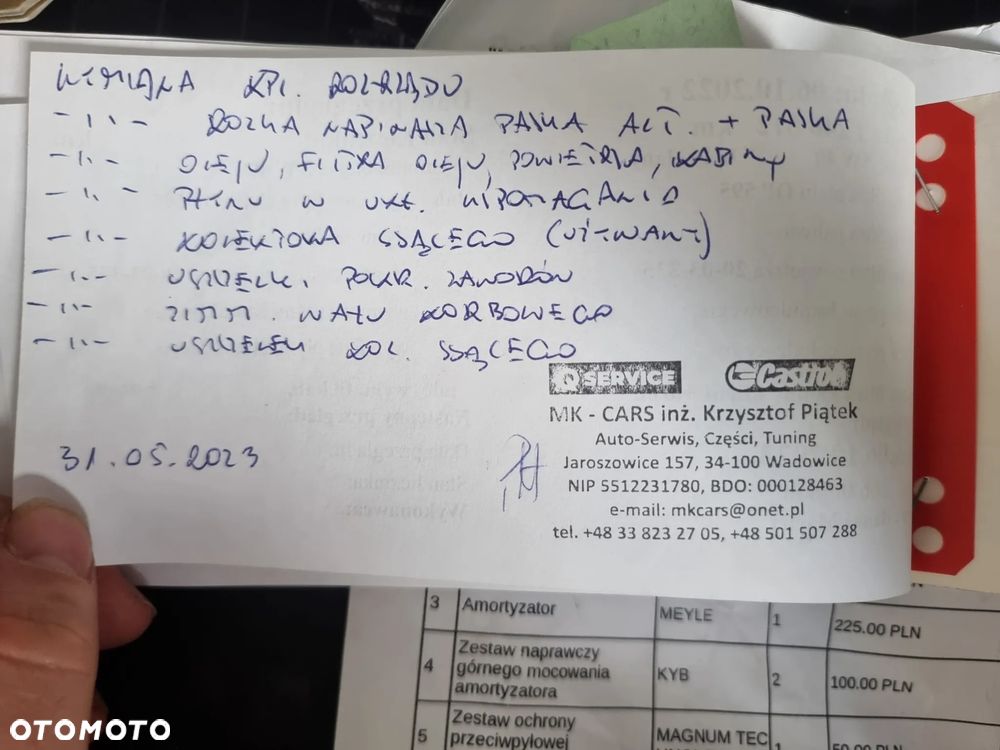 WYMIANA KPL. ROZRZĄDU
-"- ROLKA NAPINACZA PASKA ALT. + PASKA
-"- OLEJU, FILTRA OLEJU, POWIETRZA, KABINY
-"- PŁYNU W UKŁ. WSPOMAGANIA
-"- KOLEKTORA SSĄCEGO (UŻYWANY)
-"- USZCZELKI POKR. ZAWORÓW
-"- ZIMM. WAŁU KORBOWEGO
-"- USZCZELEK KOL. SSĄCEGO
31.05.2023
Q SERVICE Castrol
MK - CARS inż. Krzysztof Piątek
Auto-Serwis, Części, Tuning
Jaroszowice 157, 34-100 Wadowice
NIP 5512231780, BDO: 000128463
e-mail: mkcars@onet.pl
tel. +48 33 823 27 05, +48 501 507 288
3 Amortyzator MEYLE 1 225.00 PLN
4 Zestaw naprawczy górnego mocowania amortyzatora KYB 2 100.00 PLN
5 Zestaw ochrony przeciwpyłowej MAGNUM TEC 1 50.00 PLN
OTOMOTO